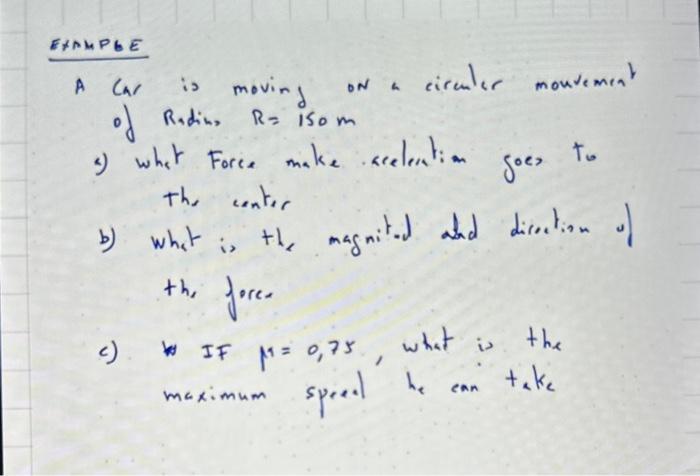 EXAMPLE
A Car is moving on a circular mouvement
of Radius R = 150 m
a) what Force make acceleration goes to
the center
b) what is the magnitud and direction of
the force
c) IF μ = 0,75, what is the
maximum speed he can take